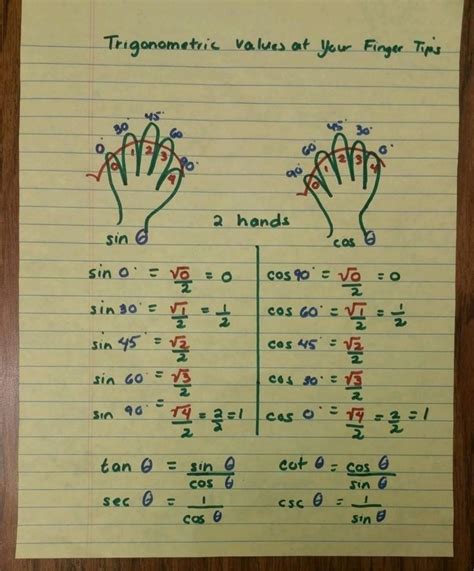 Trigonometric Values at Your Finger Tips
0° 30° 45° 60° 90°
√ 0 1 2 3 4
90° 60° 45° 30° 0°
√ 0 1 2 3 4
2 hands
sin θ
cos θ
sin 0° = √0/2 = 0
sin 30° = √1/2 = 1/2
sin 45° = √2/2
sin 60° = √3/2
sin 90° = √4/2 = 2/2 = 1
cos 90° = √0/2 = 0
cos 60° = √1/2 = 1/2
cos 45° = √2/2
cos 30° = √3/2
cos 0° = √4/2 = 2/2 = 1
tan θ = sin θ/cos θ
cot θ = cos θ/sin θ
sec θ = 1/cos θ
csc θ = 1/sin θ